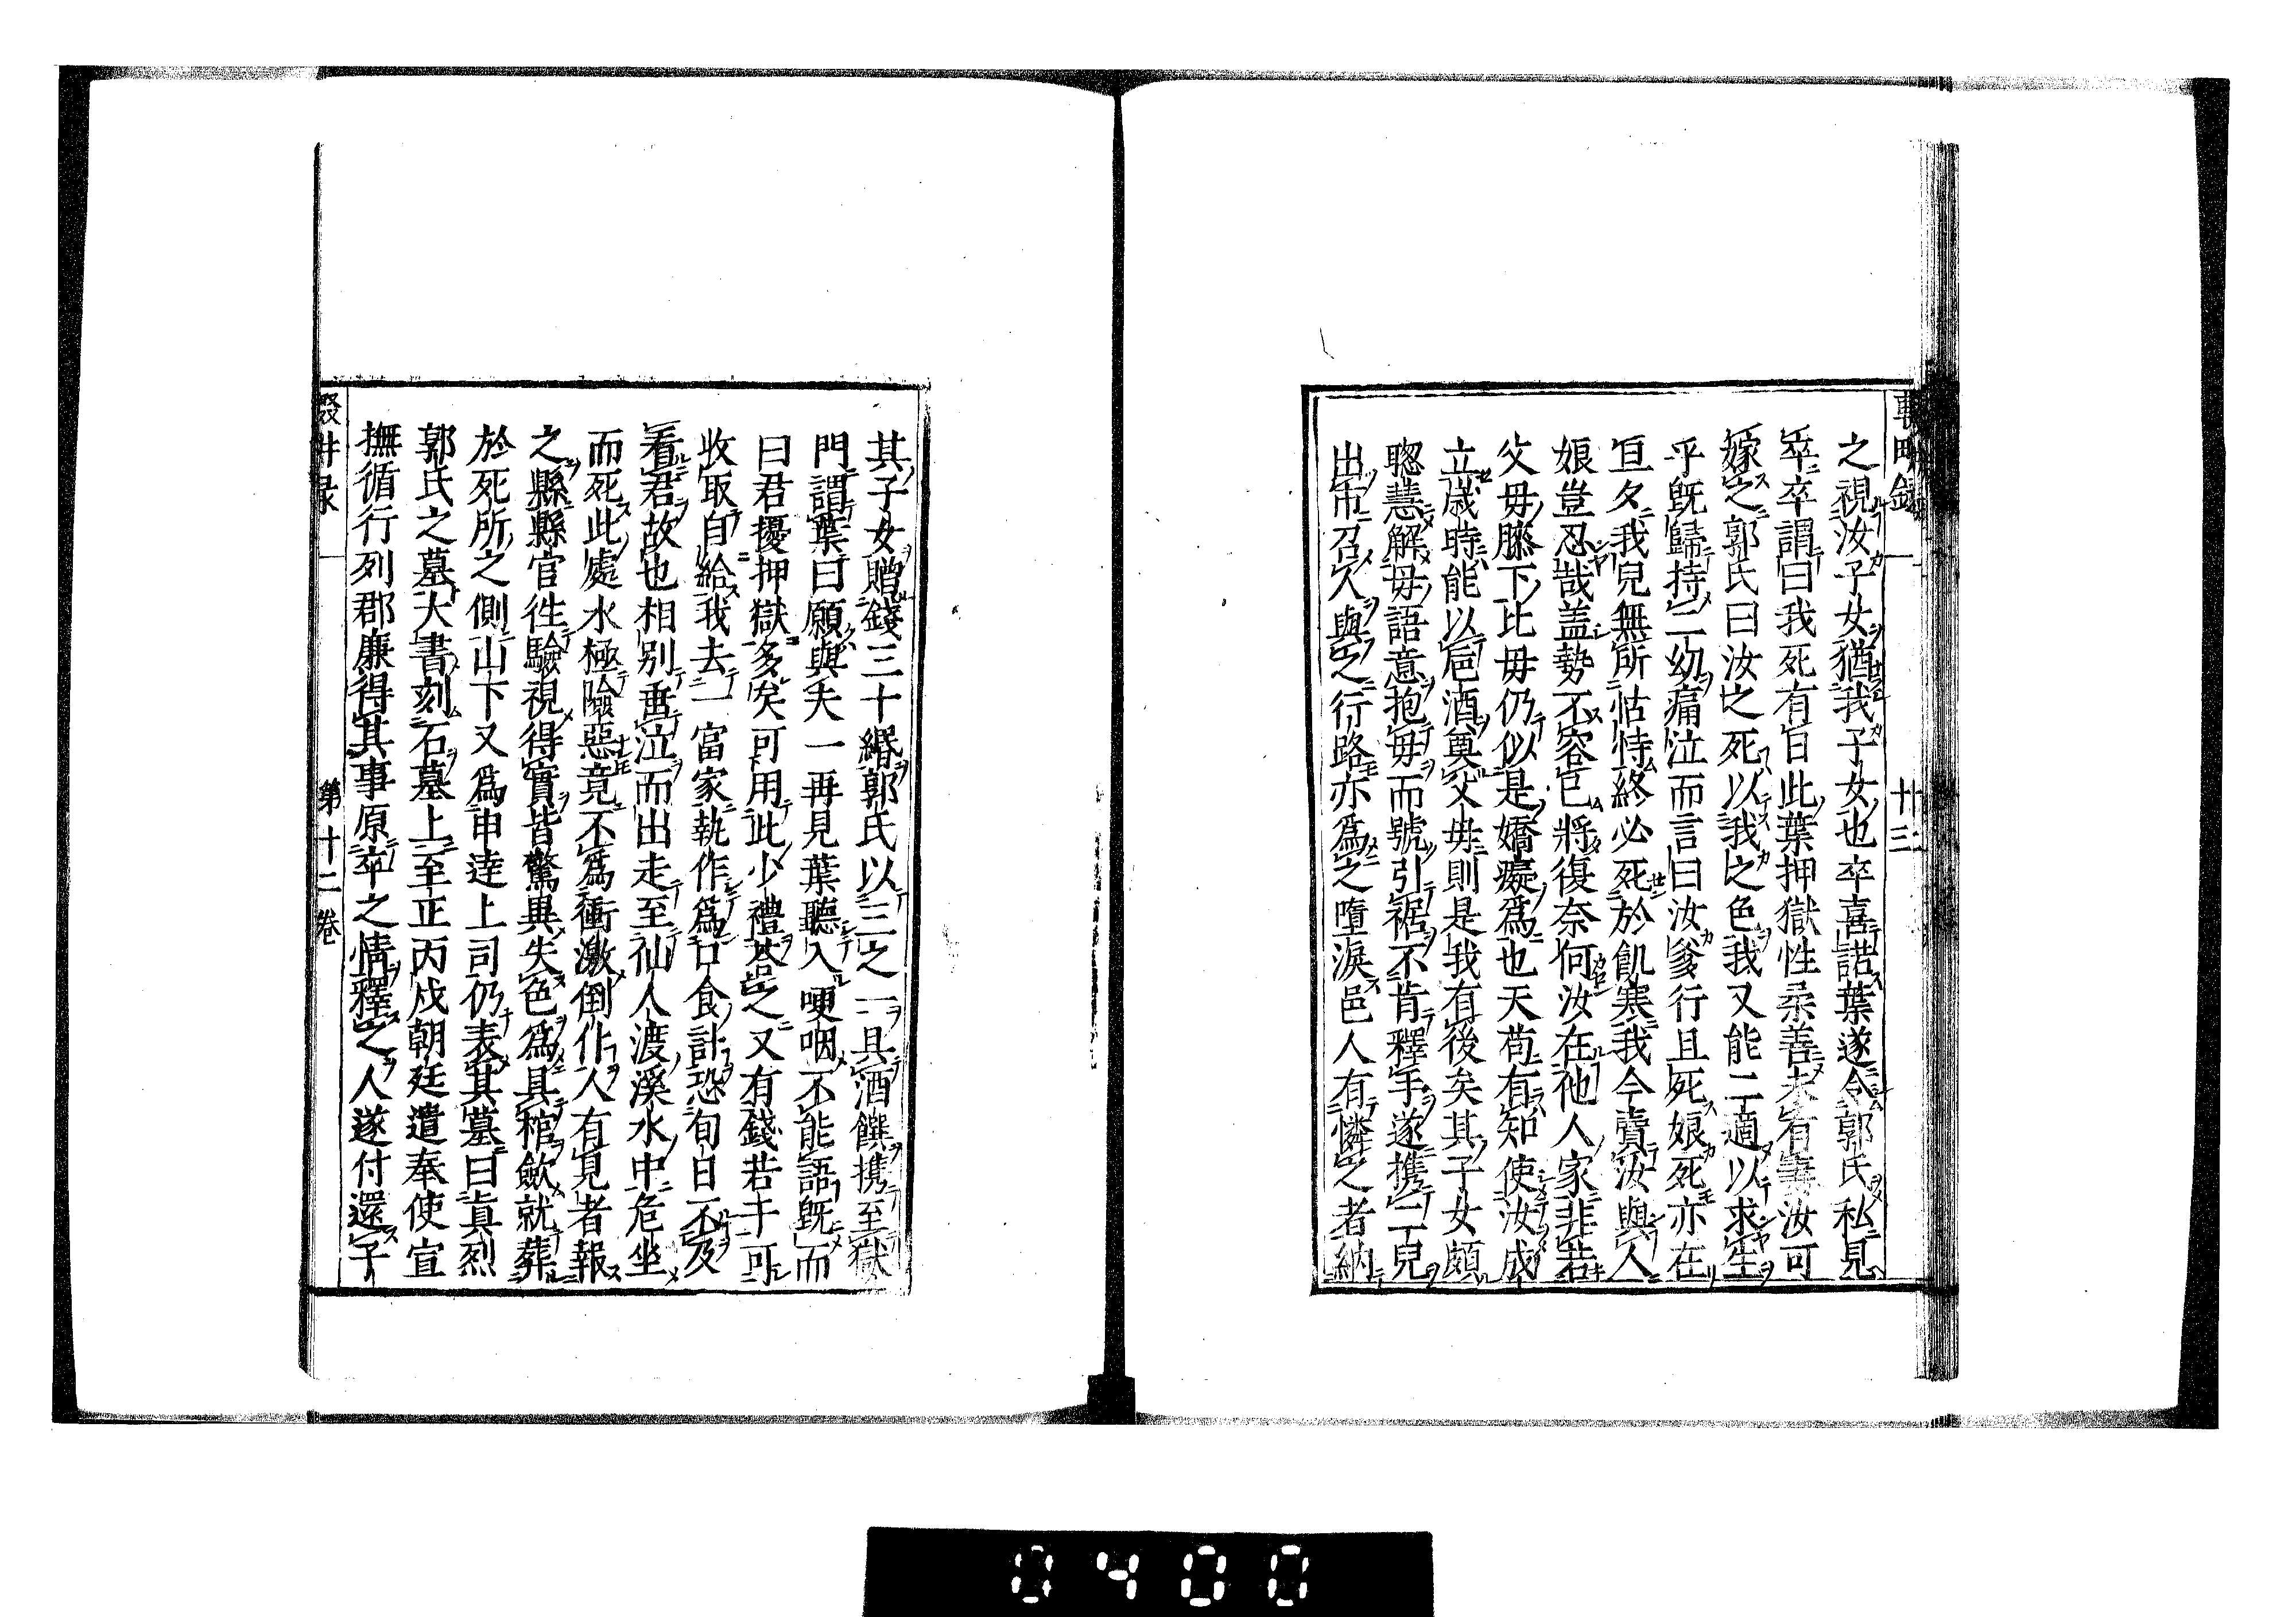 廿三
之視汝子女猶我子女也卒喜諾葉遂令郭氏私見
卒卒謂曰我死有日此葉押獄性柔善未有妻汝可
嫁之郭氏曰汝之死以我之色我又能二適以求生
乎既歸持二幼痛泣而言曰汝爹行且死娘死亦在
旦夕我兒無所怙恃終必死於飢寒我今賣汝與人
娘豈忍哉盖勢不容已將復奈何汝在他人家非若
父母膝下比毋仍似是嬌癡為也天苟有知使汝成
立歲時能以卮酒奠父母則是我有後矣其子女頗
聰慧解母語意抱母而號引裾不肯釋手遂携二兒
出市召人與之行路亦爲之墮淚邑人有憐之者納
其子女贈錢三十緡郭氏以三之一具酒饌携至獄
門謂葉曰願與夫一再見葉聽入哽咽不能語既而
曰君擾押獄多矣可用此少禮荅之又有錢若干可
收取自給我去一富家執作爲口食計恐旬日不及
看君故也相別垂泣而出走至仙人渡溪水中危坐
而死此處水極險惡竟不爲衝激倒仆人有見者報
之縣縣官徃驗視得實皆驚異失色爲具棺歛就葬
於死所之側山下又爲申逹上司仍表其墓曰眞烈
郭氏之墓大書刻石墓上至正丙戍朝廷遣奉使宣
撫循行列郡廉得其事原卒之情釋之人遂付還子
第十二卷